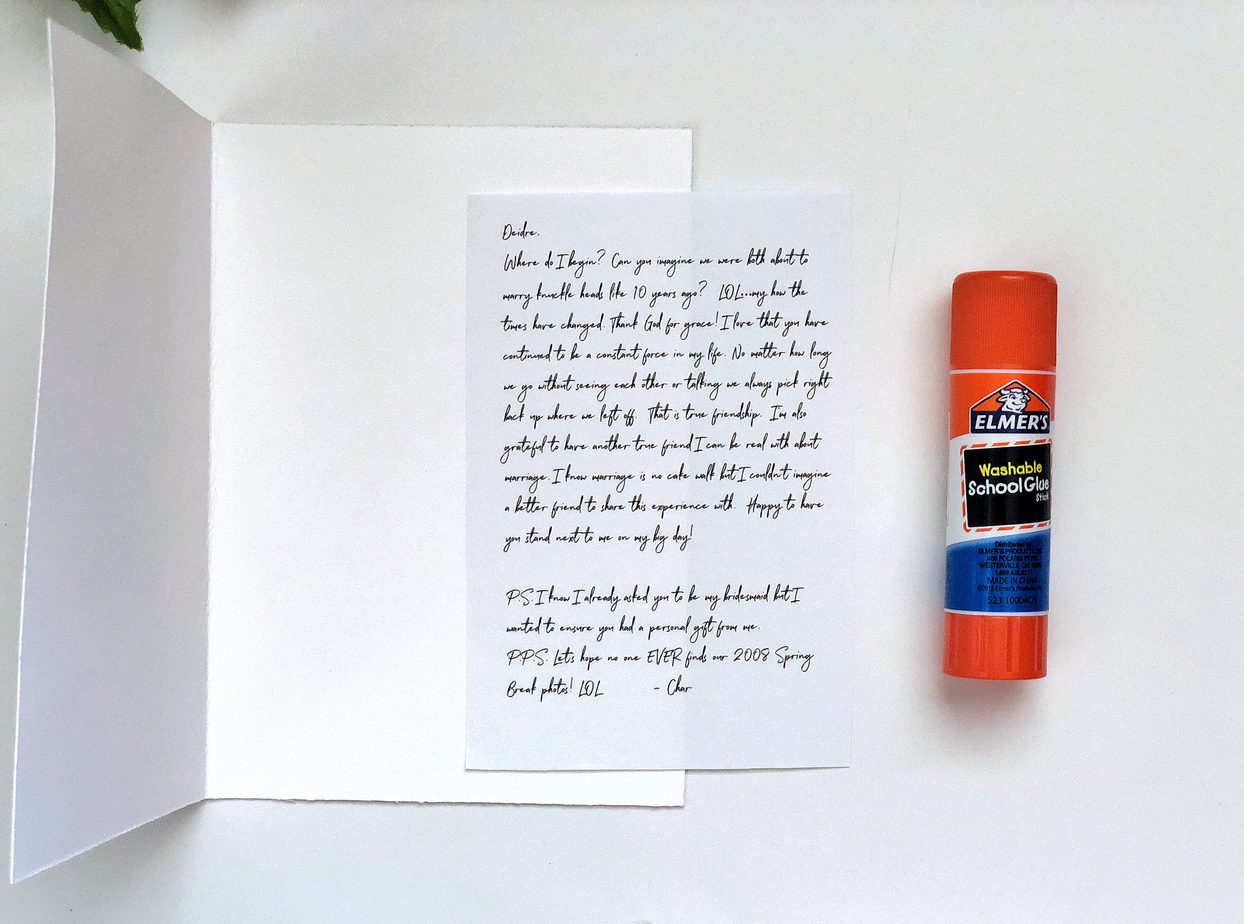 Deidre,
Where do I begin? Can you imagine we were both about to
marry knuckle heads like 10 years ago? LOL...my how the
times have changed. Thank God for grace! I love that you have
continued to be a constant force in my life. No matter how long
we go without seeing each other or talking we always pick right
back up where we left off. That is true friendship. I'm also
grateful to have another true friend I can be real with about
marriage. I know marriage is no cake walk but I couldn't imagine
a better friend to share this experience with. Happy to have
you stand next to me on my big day!
P.S. I know I already asked you to be my bridesmaid but I
wanted to ensure you had a personal gift from me.
P.P.S. Let's hope no one EVER finds our 2008 Spring
Break photos! LOL - Char
ELMER'S
Washable
School Glue
Stick
Distributed by
ELMER'S PRODUCTS, INC.
460 POLARIS PKWY
WESTERVILLE, OH
MADE IN CHINA
Elmer's Products,